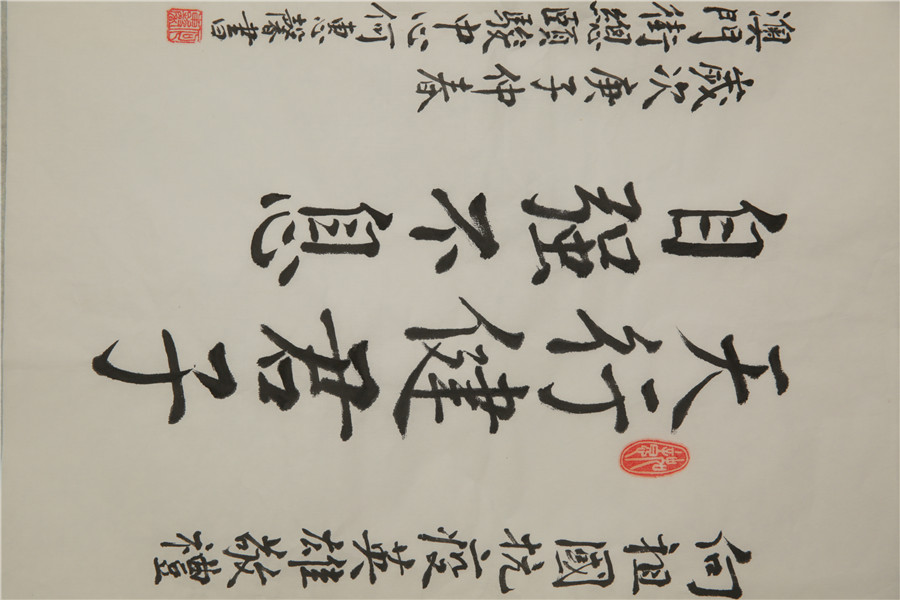 向祖國抗疫英雄敬禮
天行健君子
自强不息
歲次庚子仲春
澳門街總頤駿中心何惠馨書